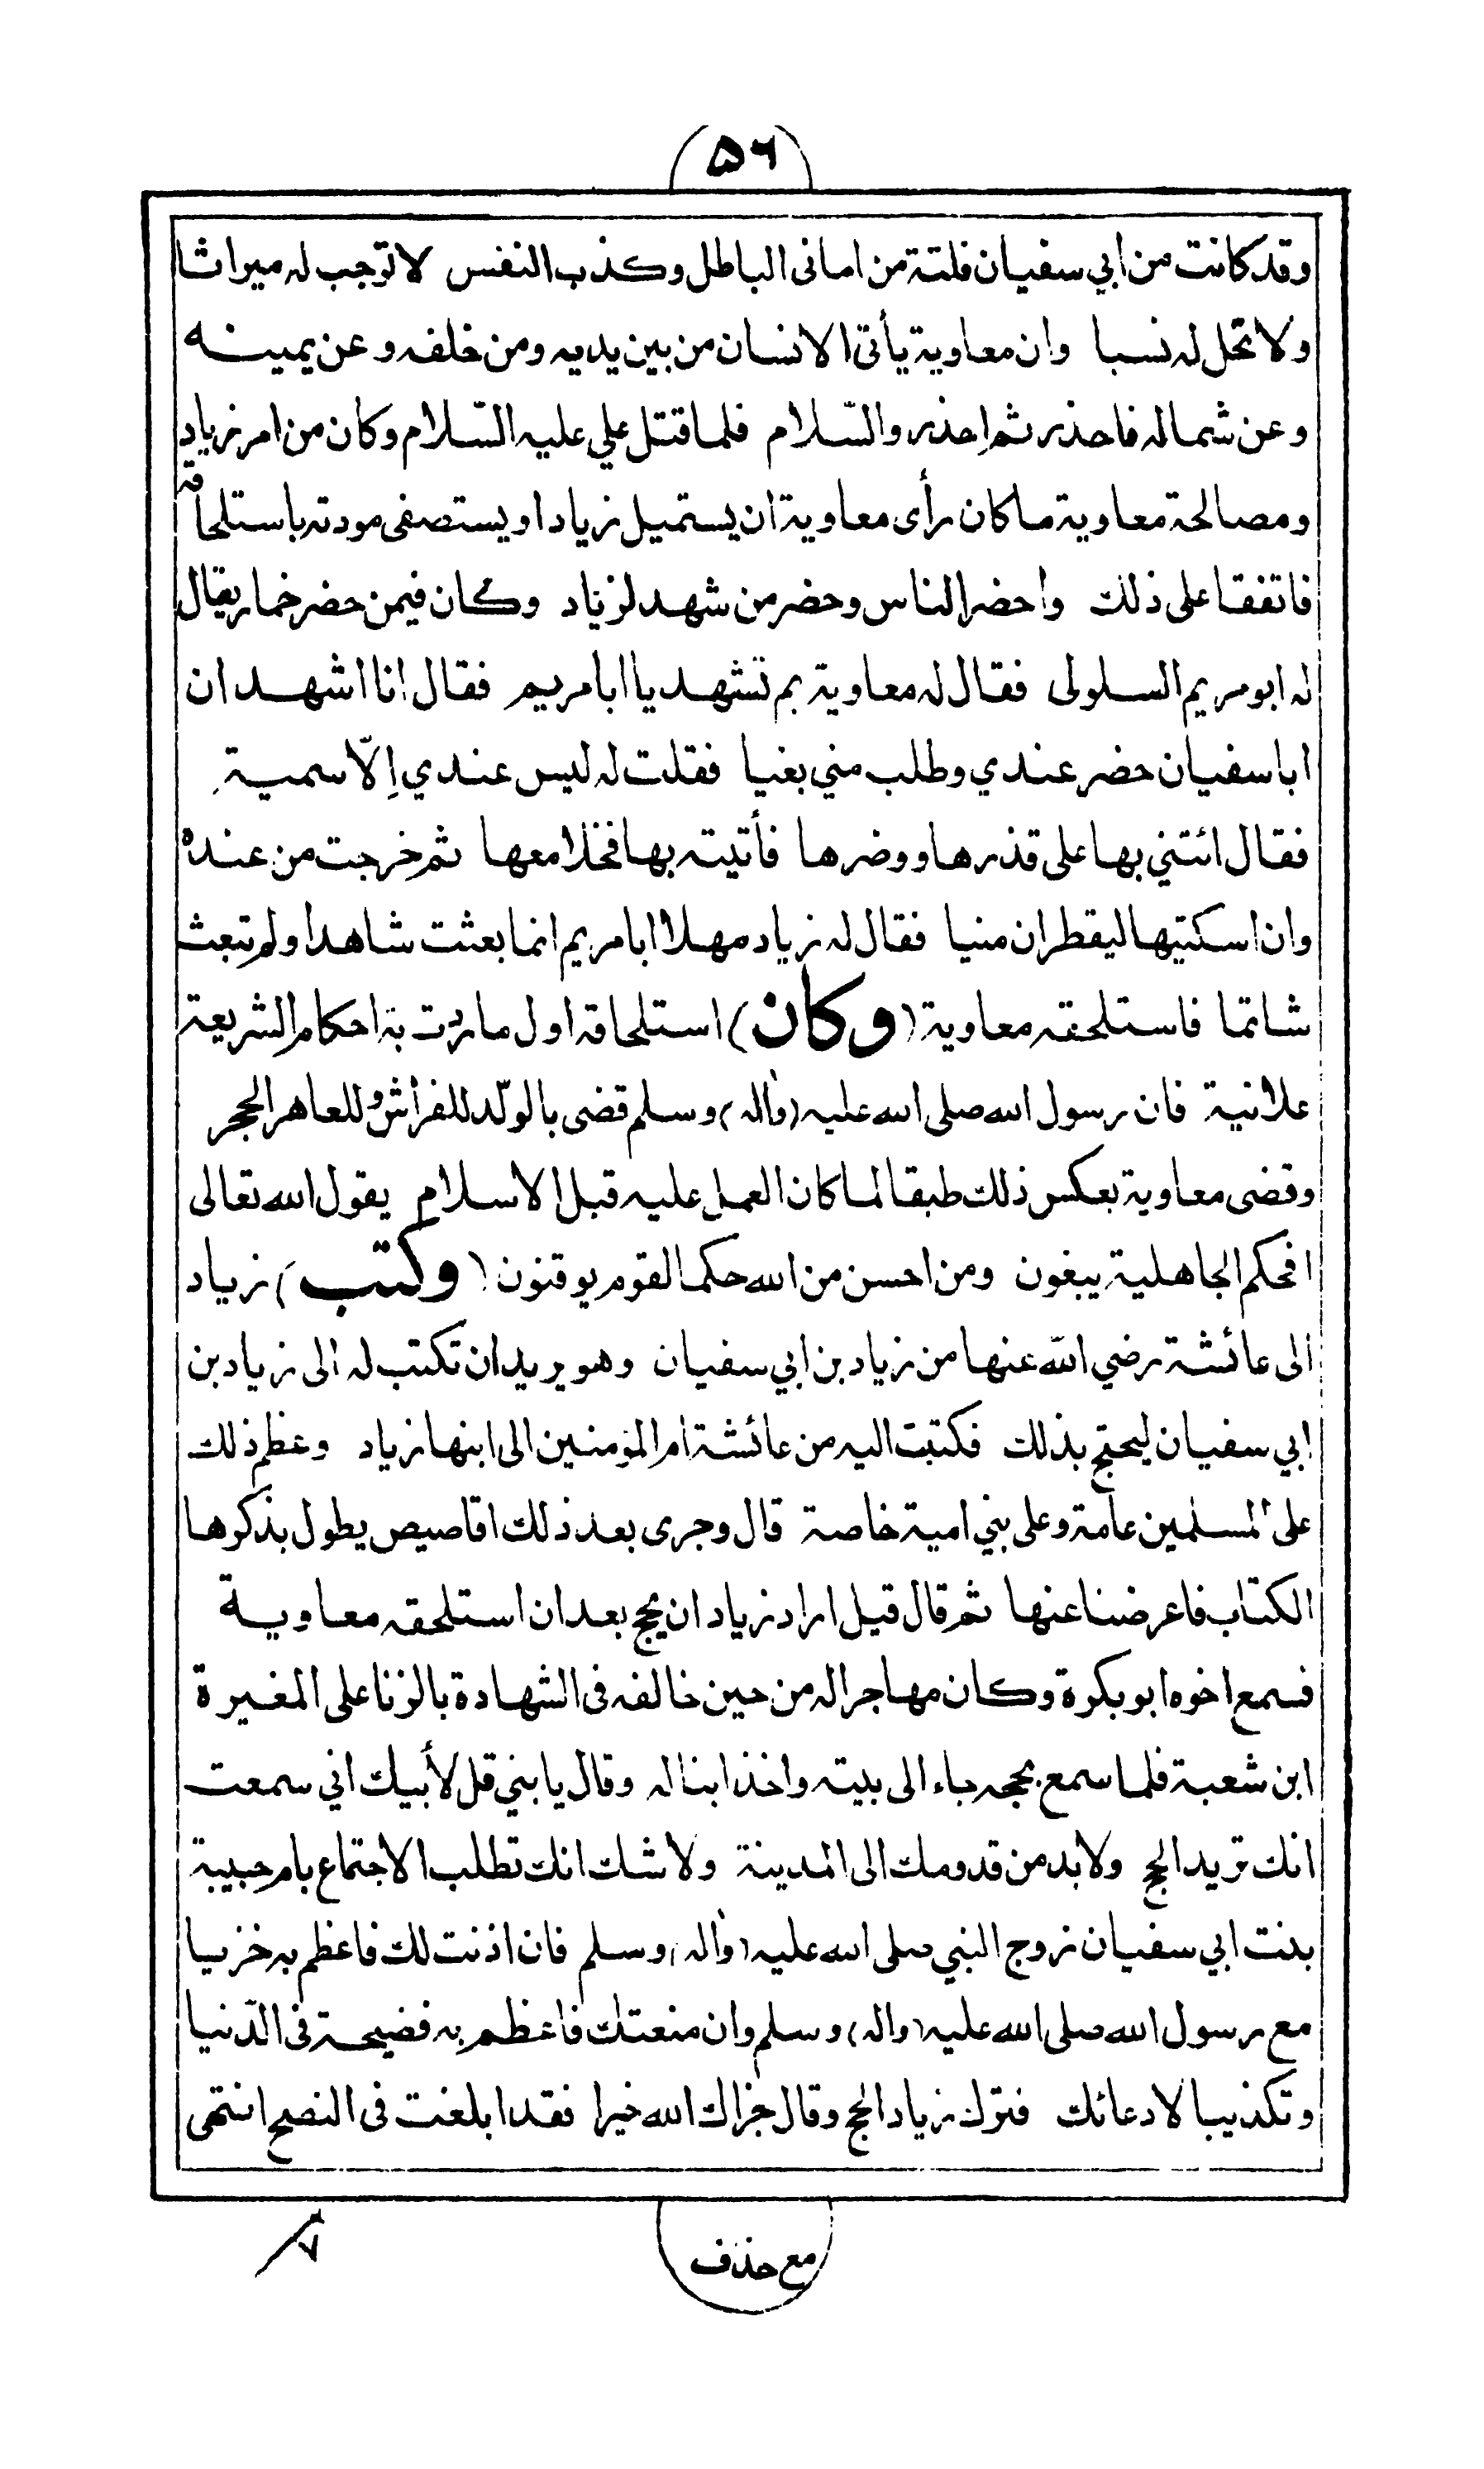 ٥٦
وقد كانت من ابي سفيان فلتة من امانى الباطل وكذب النفس لا توجب له ميراثا
ولا تحل له نسبا وان معاوية يأتى الانسان من بين يديه ومن خلفه وعن يمينه
وعن شماله فاحذر ثم احذر والسّلام فلما قتل علي عليه السّلام وكان من امر زياد
ومصالحة معاوية ما كان رأى معاوية ان يستميل زيادا ويستصفى مودته باستلحاقه
فاتفقا على ذلك واحضر الناس وحضر من شهد لزياد وكان فيمن حضر خمار يقال
له ابو مريم السلولى فقال له معاوية بم تشهد يا ابا مريم فقال انا اشهد ان
ابا سفيان حضر عندي وطلب مني بغيا فقلت له ليس عندي إلّا سمية
فقال ائتني بها على قذرها ووضرها فأتيته بها فخلا معها ثم خرجت من عنده
وان اسكتيها ليقطران منيا فقال له زياد مهلا ابا مريم انما بعثت شاهدا ولم تبعث
شاتما فاستلحقه معاوية (وكان) استلحاقه اول ما ردت به احكام الشريعة
علانية فان رسول الله صلى الله عليه (واله) وسلم قضى بالولد للفراش وللعاهر الحجر
وقضى معاوية بعكس ذلك طبقا لما كان العمل عليه قبل الاسلام يقول الله تعالى
افحكم الجاهلية يبغون ومن احسن من الله حكما لقوم يوقنون (وكتب) زياد
الى عائشة رضي الله عنها من زياد بن ابي سفيان وهو يريد ان تكتب له الى زياد بن
ابي سفيان ليحتج بذلك فكتبت اليه من عائشة ام المؤمنين الى ابنها زياد وعظم ذلك
على المسلمين عامة وعلى بني امية خاصة قال وجرى بعد ذلك اقاصيص يطول بذكرها
الكتاب فاعرضنا عنها ثم قال قيل اراد زياد ان يحج بعد ان استلحقه معاوية
فسمع اخوه ابو بكرة وكان مهاجرا له من حين خالفه فى الشهادة بالزنا على المغيرة
ابن شعبة فلما سمع بحجه جاء الى بيته واخذ ابنا له وقال يا بني قل لأبيك اني سمعت
انك تريد الحج ولا بد من قدومك الى المدينة ولا شك انك تطلب الاجتماع بام حبيبة
بنت ابي سفيان زوج النبي صلى الله عليه (واله) وسلم فان اذنت لك فاعظم به خزيا
مع رسول الله صلى الله عليه (واله) وسلم وان منعتك فاعظم به فضيحة فى الدّنيا
وتكذيبا لادعائك فترك زياد الحج وقال جزاك الله خيرا فقد ابلغت فى النصح انتهى
مع حذف